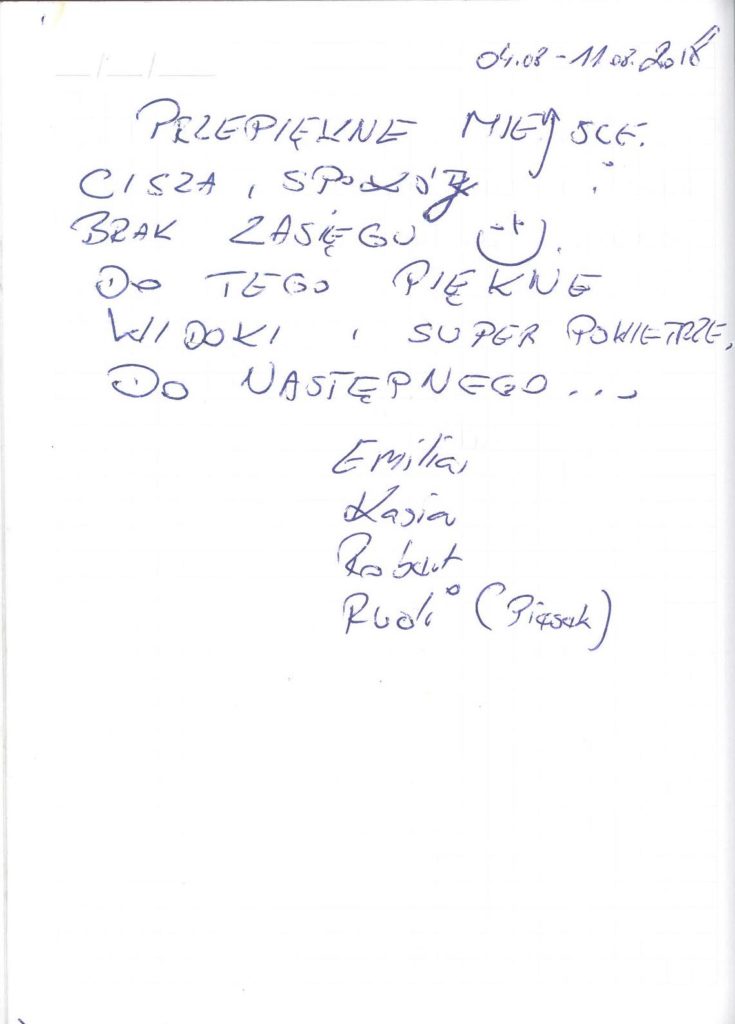 04.08 - 11.08.2018
PRZEPIĘKNE MIEJSCE.
CISZA, SPOKÓJ
BRAK ZASIĘGU :).
DO TEGO PIĘKNE
WIDOKI I SUPER POWIETRZE.
DO NASTĘPNEGO...
Emilia,
Kasia
Robert
Rudi (Piesek)